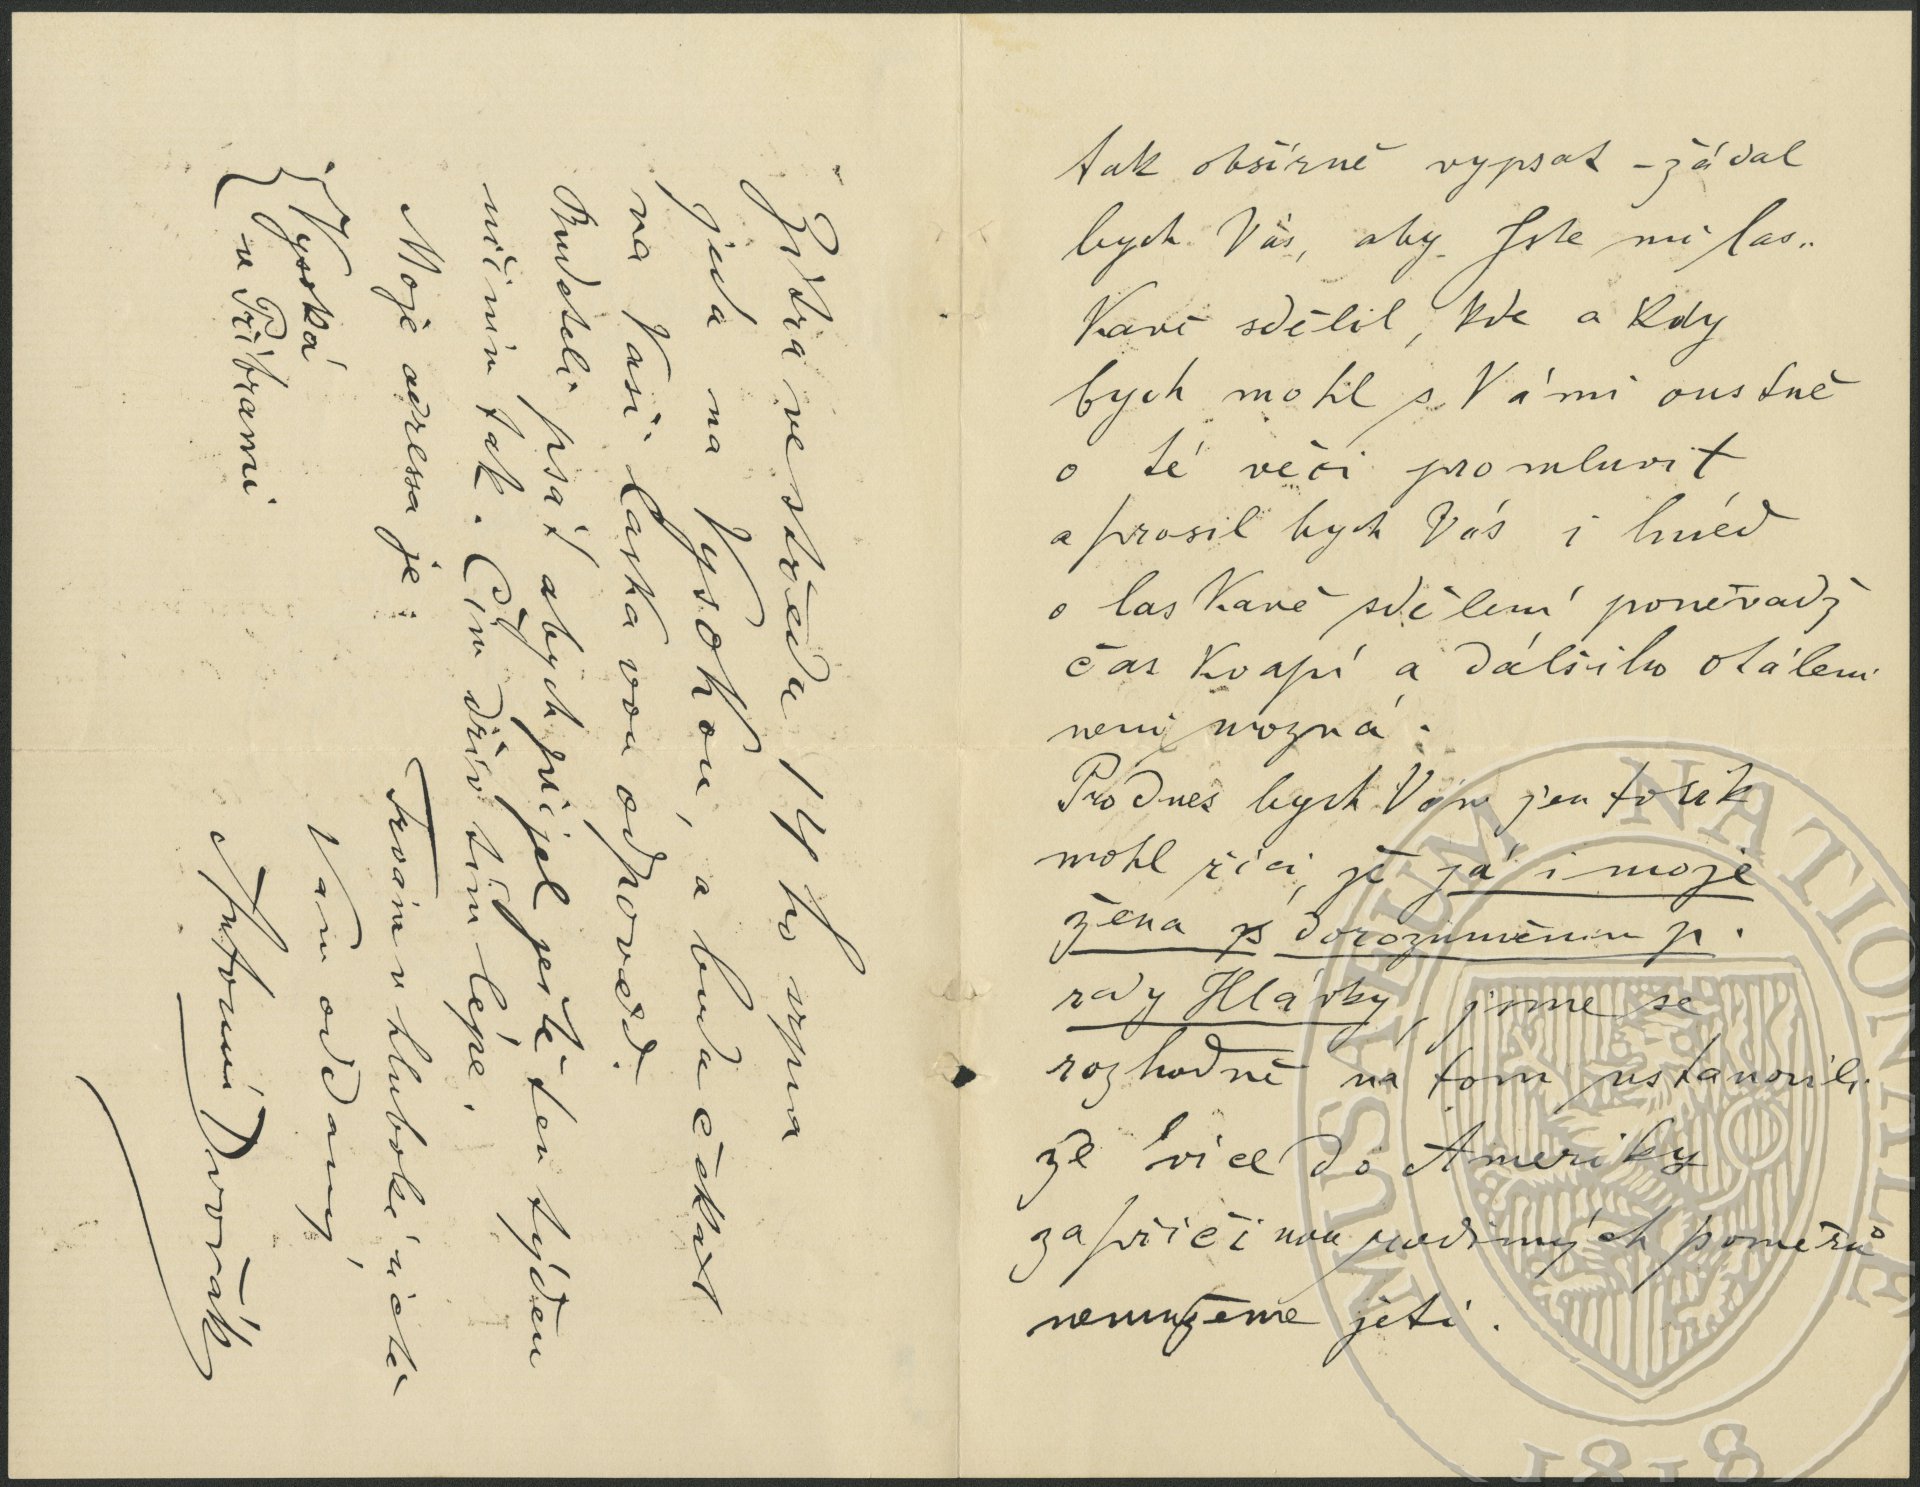 tak obšírně vypsat – žádal
bych Vás, aby Jste mi las„
kavě sdělil, kde a kdy
bych mohl s Vámi oustně
o té věci promluvit
a prosil bych Vás i hněd
o laskavé sdělení poněvadž
čas kvapí a dálšiho otáleni
neni možná.
Pro dnes bych Vám jen tolik
mohl řici, že já i moje
žena s dorozuměnim p.
rady Hlávky, jsme se
rozhodně na tom ustanovili
že více do Ameriky
za přičinou rodiných poměrů
nemužeme jeti.
Zýtra ve středu 14ho srpna
jedu na Vysokou, a budu čekat
na Vaši laskavou odpoveď.
Budeteli psat abych přijel ještě ten týden
učinim tak. Čím dřív tím lépe.
Moje adressa je:
Vysoká
u Přibrami
Trvám v hluboké úctě
Vám oddaný
Antonín Dvořák
MUSAEUM NATIONALE
1818